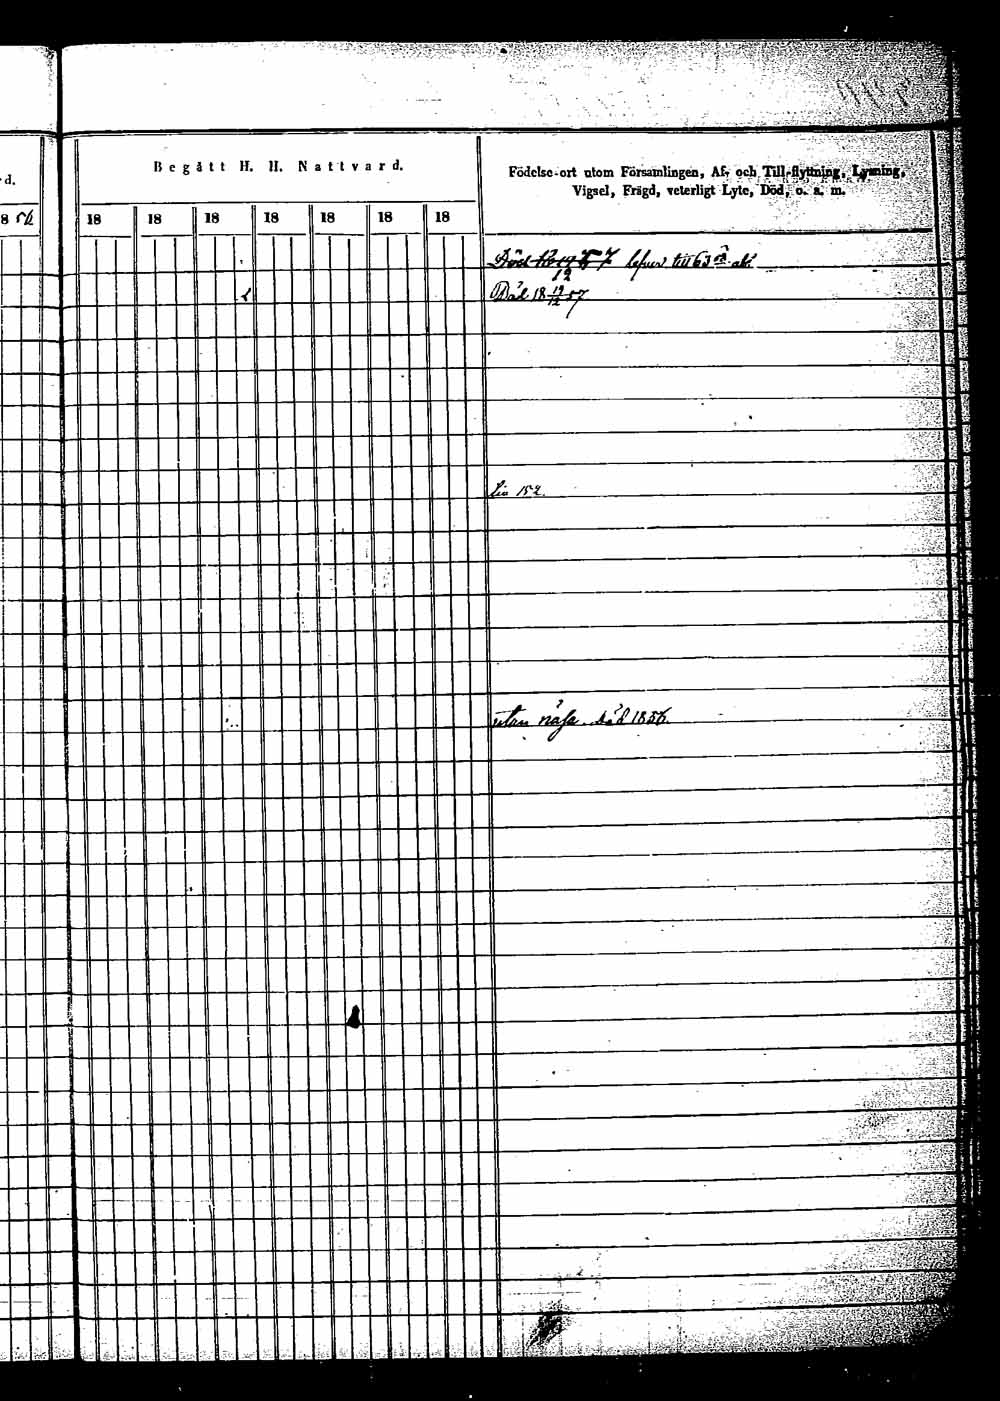 d.
8 56
Begått H. H. Nattvard.
18 18 18 18 18 18 18
Födelse-ort utom Församlingen, Af- och Till-flyttning, Lysning,
Vigsel, Frägd, veterligt Lyte, Död, o. s. m.
Död 7 till 63
12
Död 18 19/12 57
152.
utan näsa. död 1856.